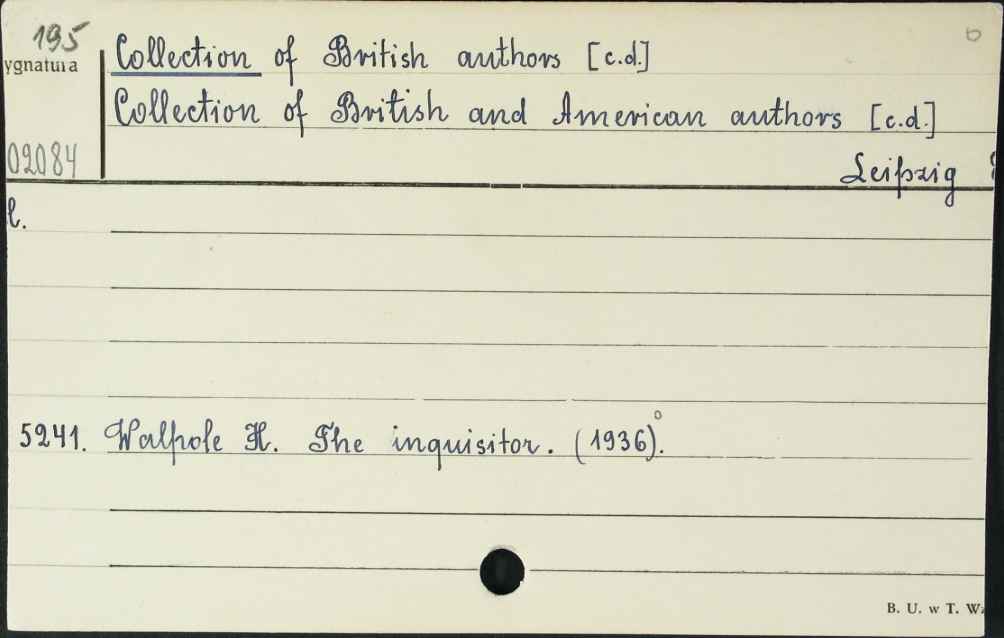 195
ygnatura
Collection of British authors [c.d.]
Collection of British and American authors [c.d.]
02084
Leipzig
l.
5241. Walpole H. The inquisitor. (1936)°.
B. U. w T.
6